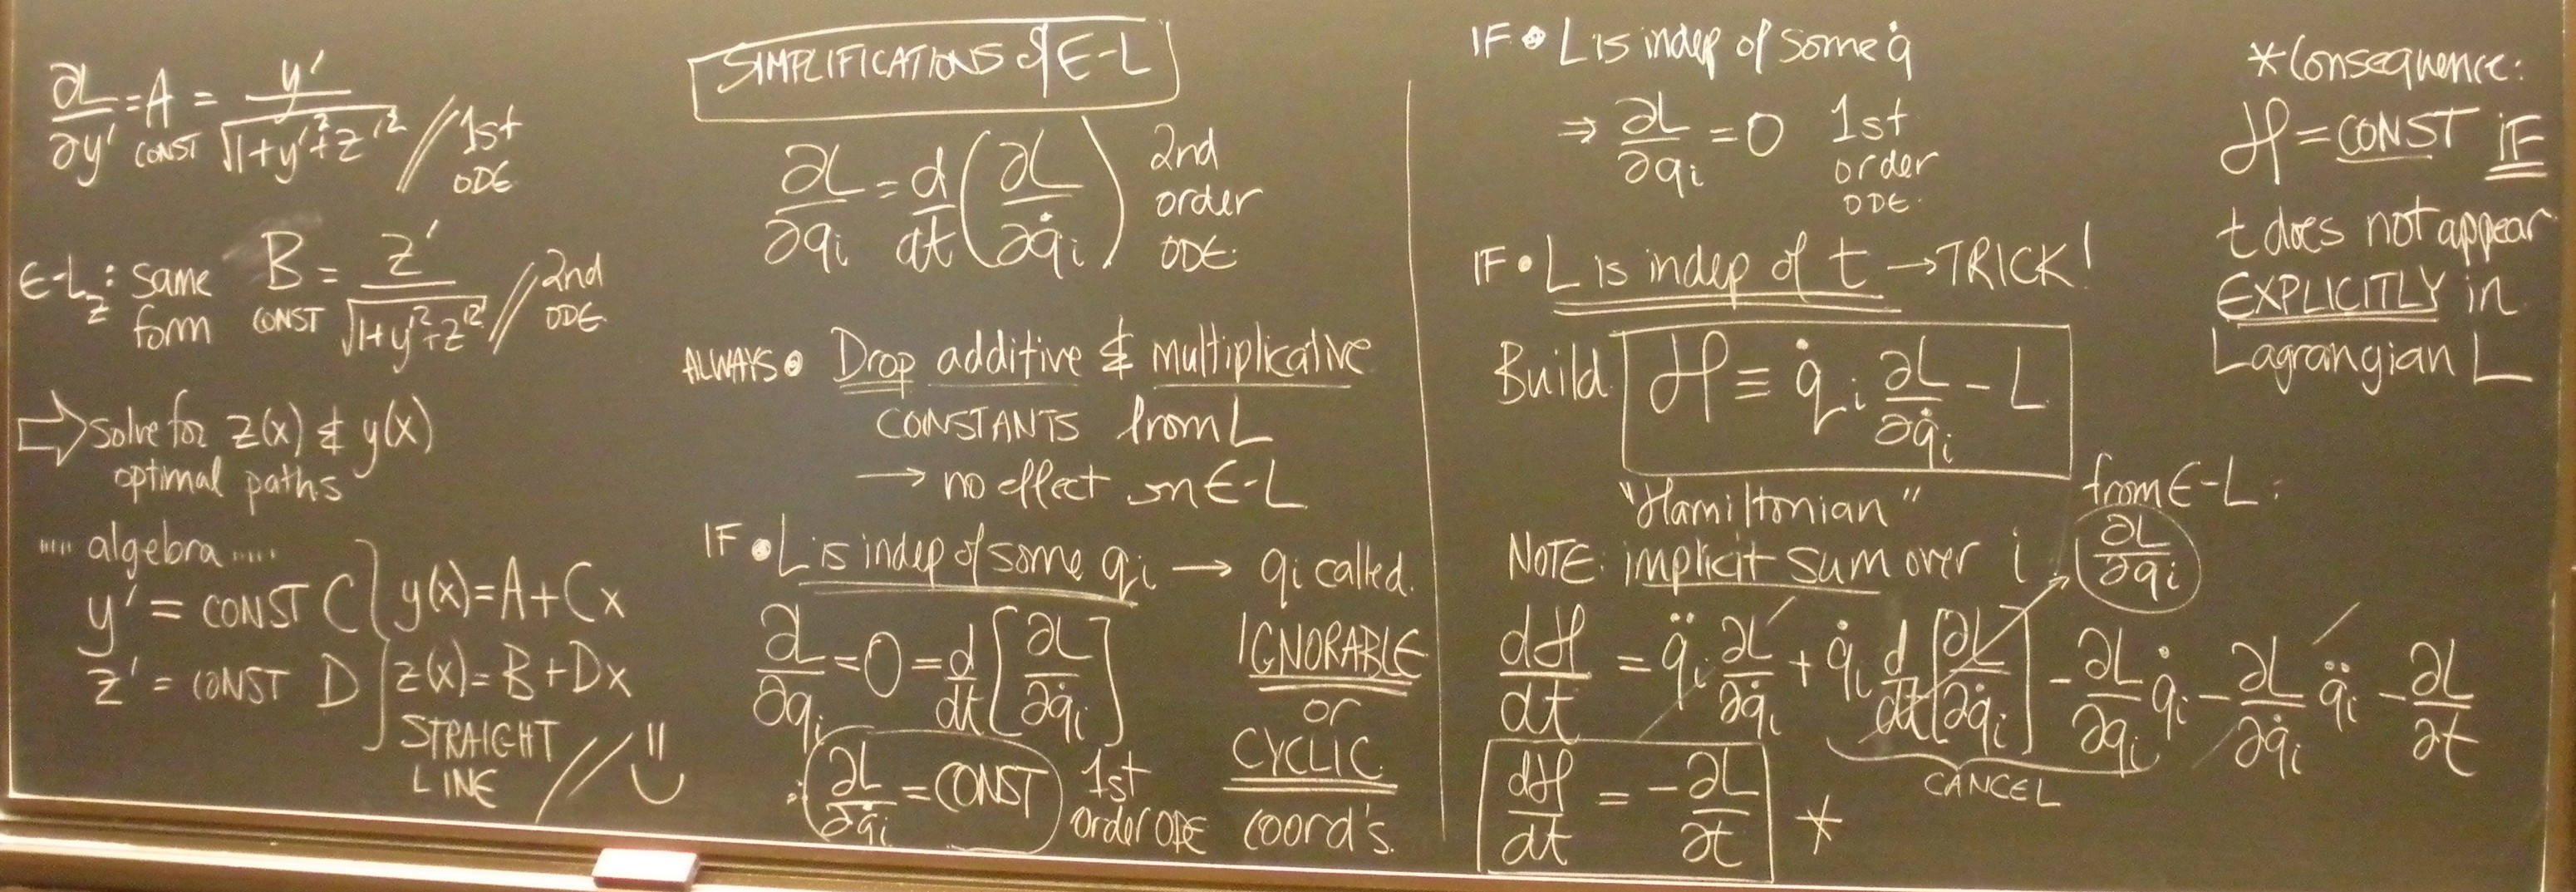 ∂L/∂y' = A CONST = y'/√(1+y'²+z'²) // 1st ODE
E-L_z: same form B CONST = z'/√(1+y'²+z'²) // 2nd ODE
⇒ solve for z(x) & y(x)
optimal paths
"" algebra ""
y' = CONST C } y(x) = A + Cx
z' = CONST D } z(x) = B + Dx
STRAIGHT
LINE //
SIMPLIFICATIONS of E-L
∂L/∂qᵢ = d/dt (∂L/∂q̇ᵢ) 2nd order ODE.
ALWAYS • Drop additive & multiplicative
CONSTANTS from L
→ no effect on E-L
IF • L is indep of some qᵢ → qᵢ called
IGNORABLE
or
CYCLIC
coord's.
∂/∂qᵢ = 0 = d/dt [∂L/∂q̇ᵢ]
∴ ∂L/∂q̇ᵢ = CONST 1st order ODE
IF • L is indep of some q̇
⇒ ∂L/∂qᵢ = 0 1st order ODE.
IF • L is indep of t → TRICK!
Build H ≡ q̇ᵢ ∂L/∂q̇ᵢ - L
"Hamiltonian"
NOTE: implicit sum over i
from E-L:
∂L/∂qᵢ
dH/dt = q̈ᵢ ∂L/∂q̇ᵢ + q̇ᵢ d/dt [∂L/∂q̇ᵢ] - ∂L/∂qᵢ q̇ᵢ - ∂L/∂q̇ᵢ q̈ᵢ - ∂L/∂t
CANCEL
dH/dt = -∂L/∂t *
* Consequence:
H = CONST IF
t does not appear
EXPLICITLY in
Lagrangian L